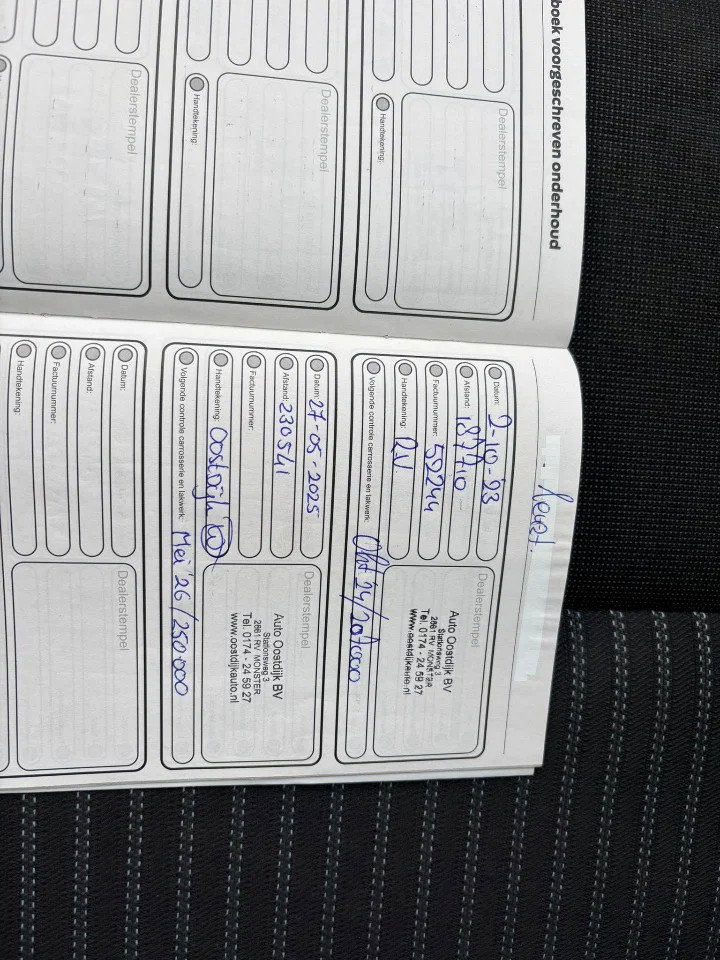 boek voorgeschreven onderhoud
Dealerstempel
Handtekening:
Dealerstempel
Handtekening:
Dealerstempel
Datum: 2-10-'23
Afstand: 187710
Factuurnummer: 59244
Handtekening: RV
Volgende controle carrosserie en lakwerk: Okt 24/207000
Dealerstempel
Auto Oostdijk BV
Stationsweg 3
2681 RV MONSTER
Tel. 0174 - 24 59 27
www.oostdijkauto.nl
Datum: 27-05-2025
Afstand: 230541
Factuurnummer:
Handtekening: Oostdijk
Volgende controle carrosserie en lakwerk: Mei '26/250.000
Dealerstempel
Auto Oostdijk BV
Stationsweg 3
2681 RV MONSTER
Tel. 0174 - 24 59 27
www.oostdijkauto.nl
Datum:
Afstand:
Factuurnummer:
Handtekening:
Dealerstempel